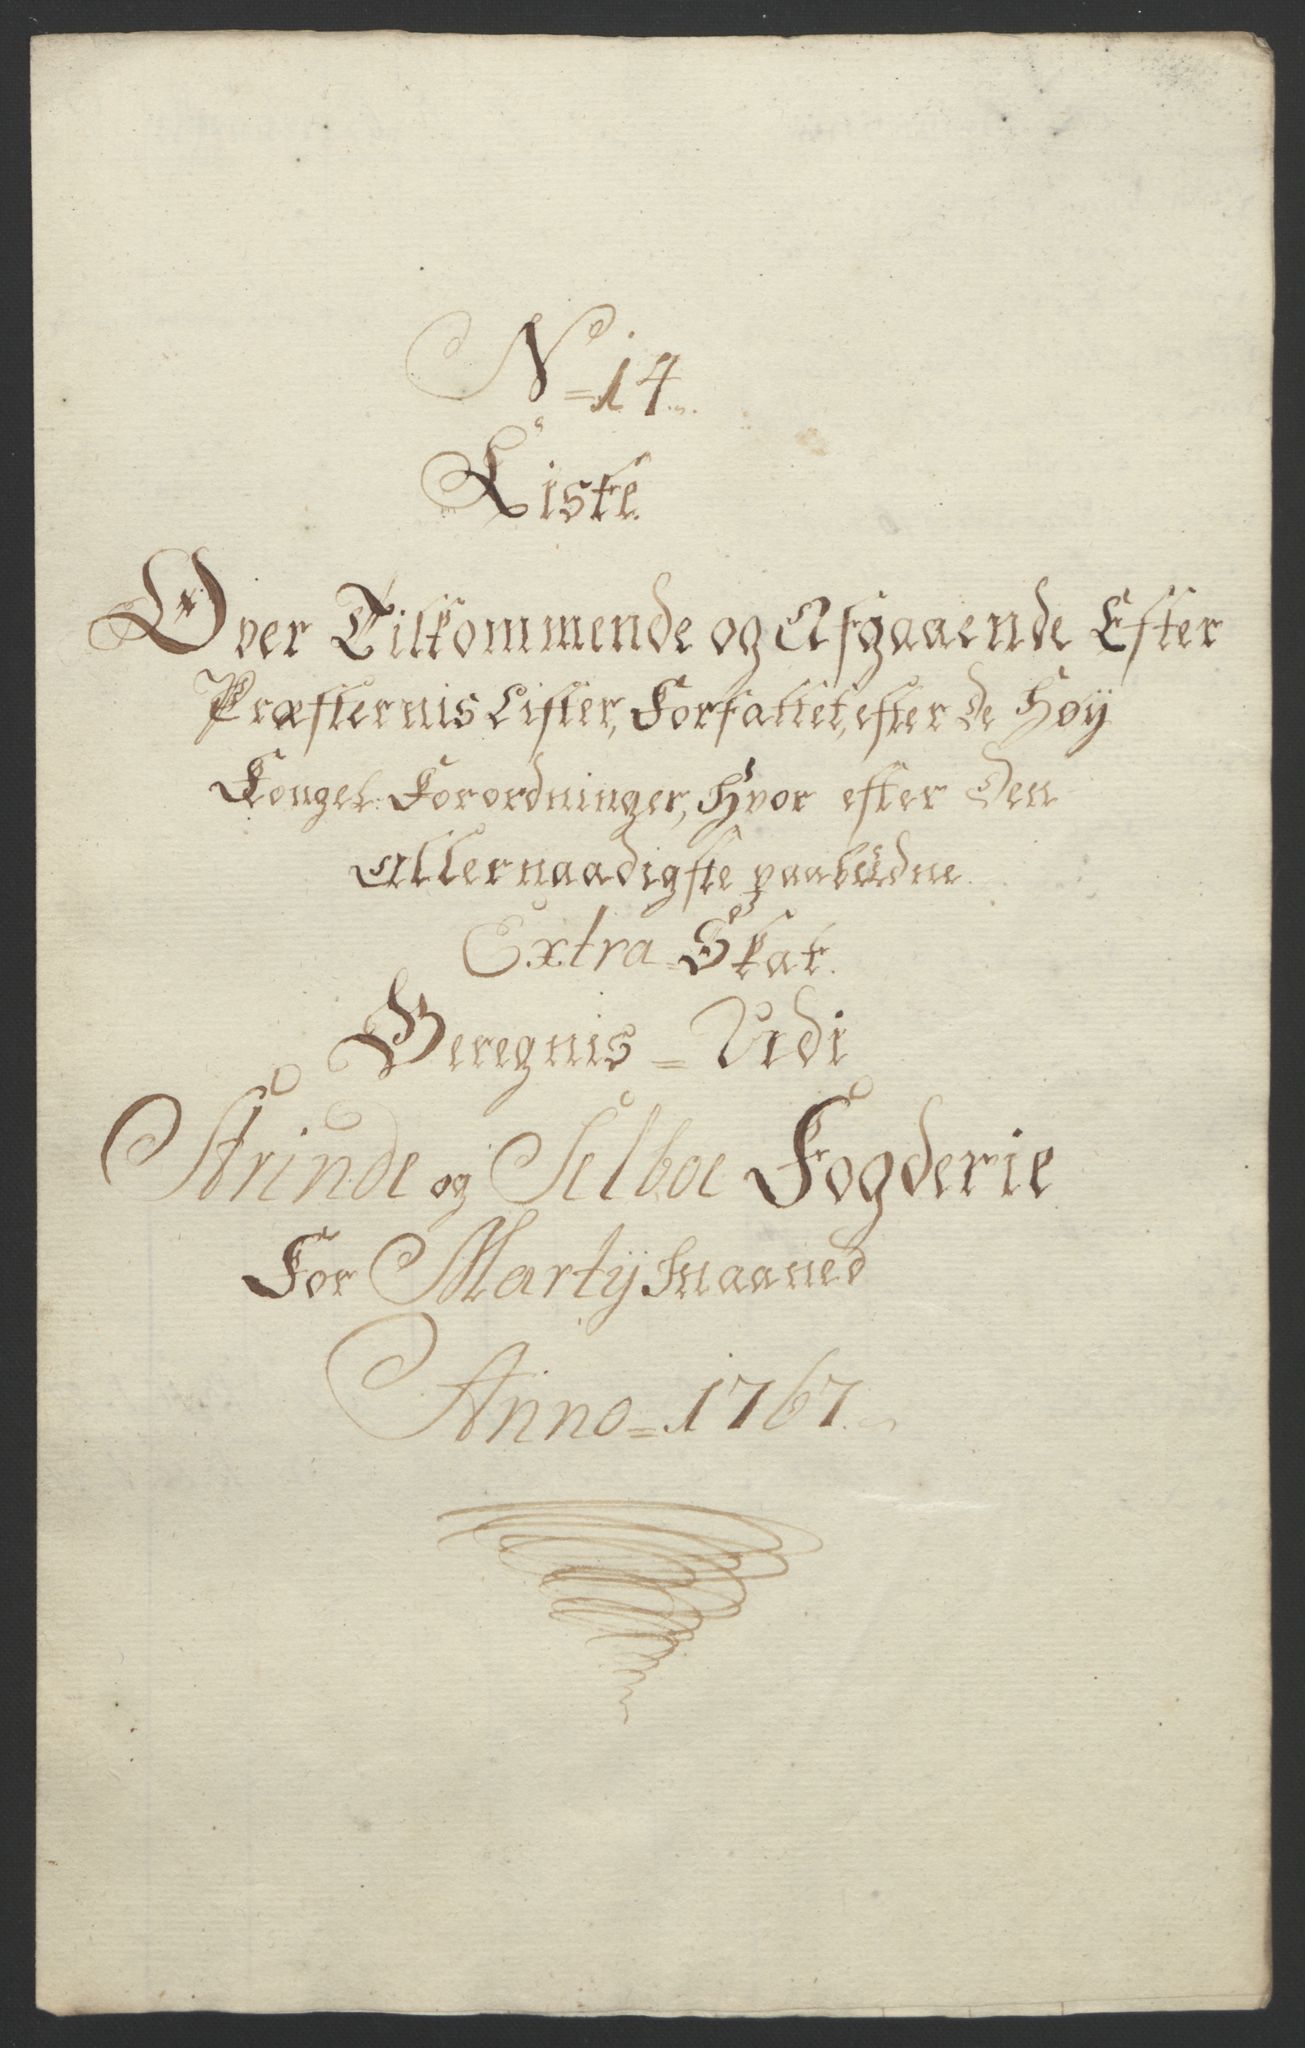 N=14.
Liste
Over Tilkommende og Afgaaende Efter
Præsternis Lister, Forfattet, efter de Høy
Kongel: Forordninger, Hvor efter Den
Allernaadigste paabudne
Extra=Skat.
Beregnis=Udi
Strinde og Selboe Fogderie
For Martij Maaned
Anno=1767.